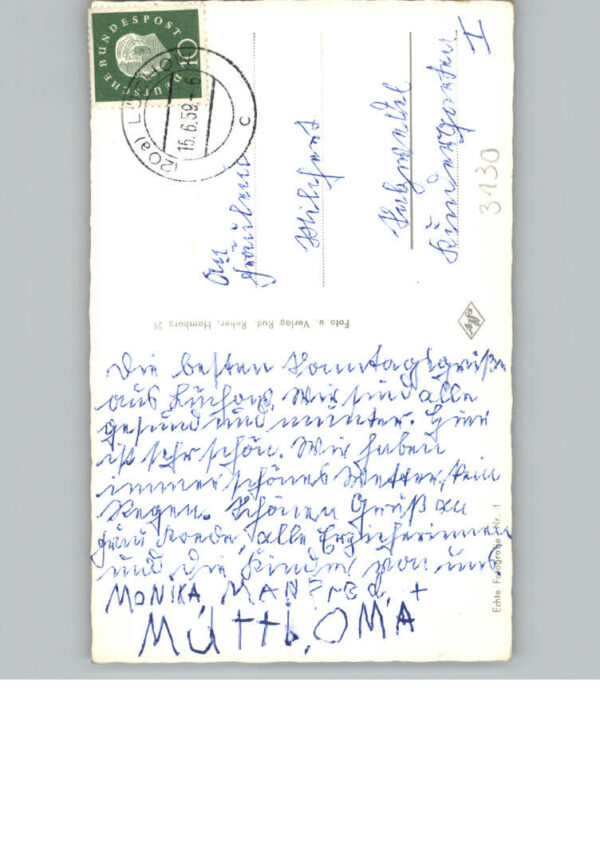 Die besten Sonntagsgrüße
aus Lüchow. Wir sind alle
gesund und munter. Hier
ist sehr schön. Wir haben
immer schönes Wetter, kein
Regen. Schönen Gruß an
Frau alle Erzieherinnen
und die Kinder von uns
MONIKA MANFRED +
MUTTI, OMA
An
Fräulein
Salzwedel
Kindergarten
I
3130
DEUTSCHE BUNDESPOST
10
(20a) LÜCHOW
15.6.59.-6
c
Foto u. Verlag Rud. Reher, Hamburg 21
Echte Fotografie Nr. 1